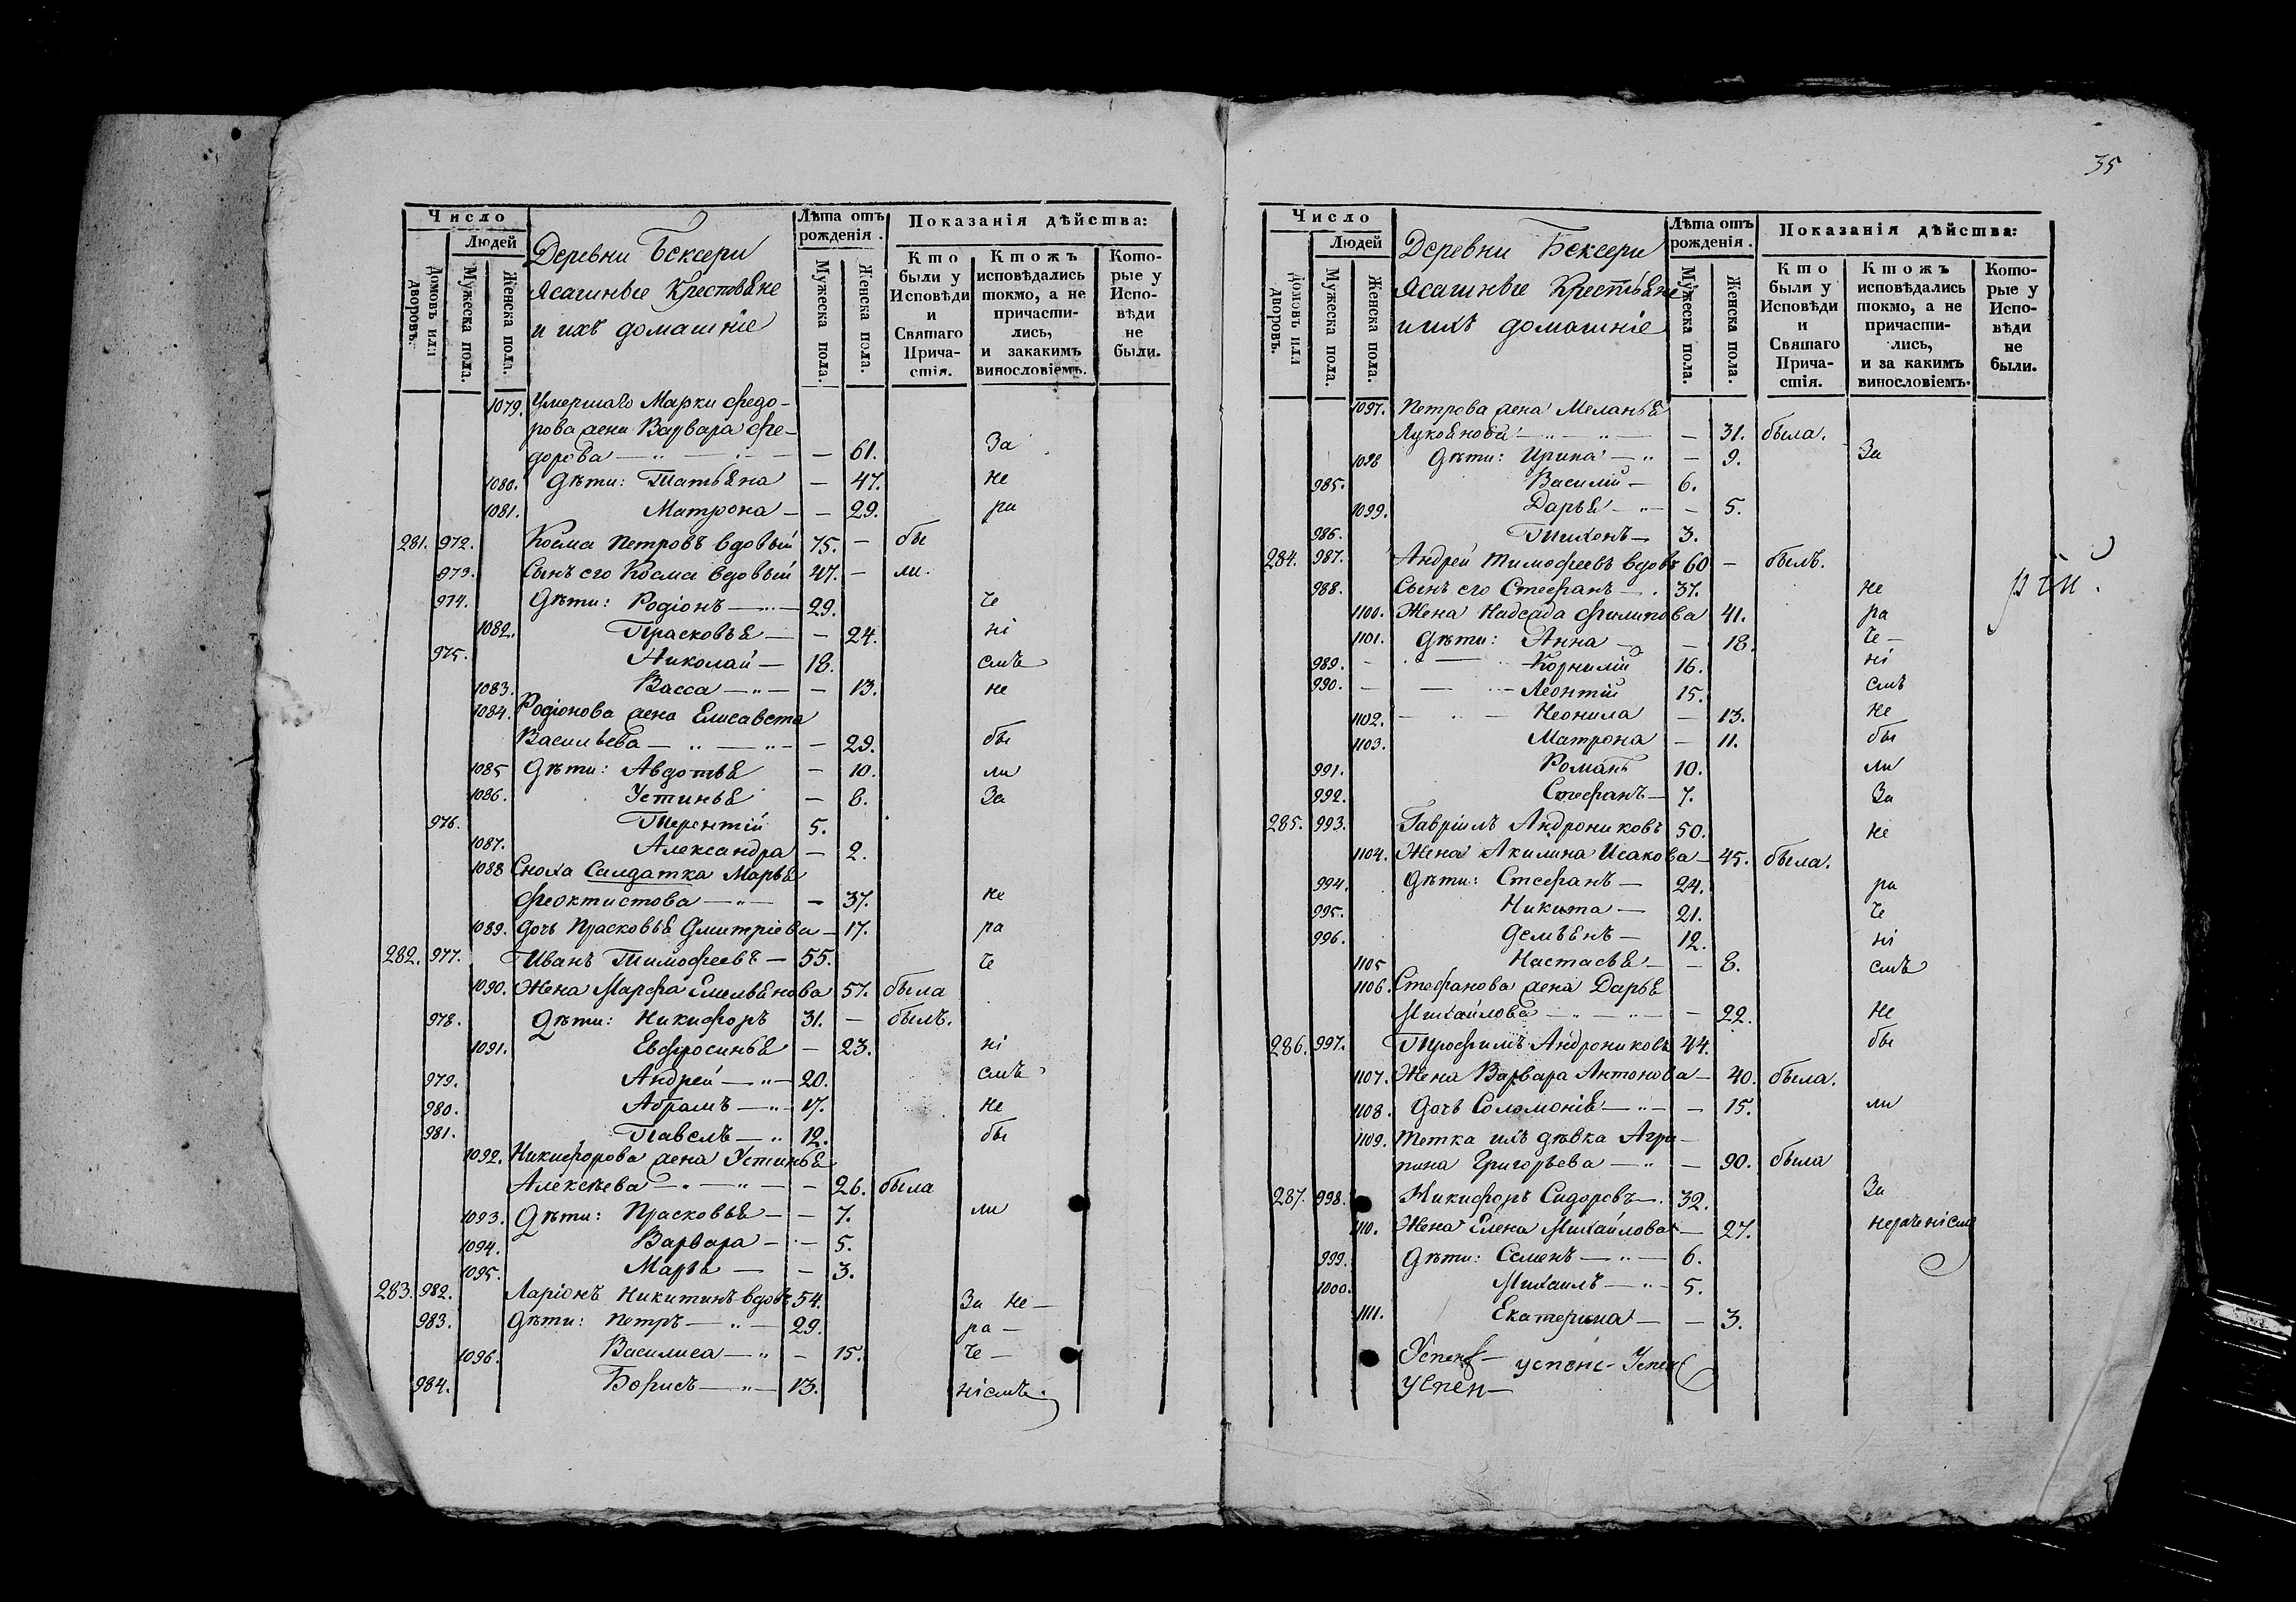 Число
Людей
Домовъ или дворовъ.
Мужеска пола.
Женска пола.
Деревни Бексери
Ясашныѣ Крестьяне
и ихъ домашніе
Лѣта отъ рожденія.
Мужеска пола.
Женска пола.
Показанія дѣйства:
Кто были у Исповѣди и Святаго Причастія.
Ктожъ исповѣдались токмо, а не причастились, и закакимъ винословіемъ.
Которые у Исповѣди не были.
1079. Умершаго Марки Федо-
рова жена Варвара Фе-
дорова — 61. За
1080. Дѣти: Татьяна — 47. не
1081. Матрона — 29. ра
281. 972. Косма Петровъ вдовый 75. — бы
973. Сынъ его Косма вдовый 47. — ли.
974. Дѣти: Родіонъ — 29. че
1082. Прасковья — 24. ні
975. Николай — 18. смъ
1083. Васса — 13. не
1084. Родіонова жена Елисавета
Васильева — 29. бы
1085 Дѣти: Авдотья — 10. ли
1086. Устинья — 8. За
976. Терентій 5.
1087. Александра — 2.
1088 Сноха Салдатка Марья
Феоктистова — 37. не
1089. Дочь Прасковья Дмитріева — 17. ра
282. 977. Иванъ Тимофеевъ — 55. че
1090. Жена Марфа Емельянова 57. была
978. Дѣти: Никифоръ 31. — былъ.
1091. Евфросинья — 23. ні
979. Андрей — 20. смъ
980. Абрамъ — 17. не
981. Павелъ — 12. бы
1092. Никифорова жена Устинья
Алексѣева — 26. была
1093. Дѣти: Прасковья — 7. ли
1094. Варвара — 5.
1095. Марья — 3.
283. 982. Ларіонъ Никитинъ вдовъ 54. За не —
983. Дѣти: Петръ — 29. ра —
1096. Василиса — 15. че —
984. Борисъ — 13. нісмъ.
35
Число
Людей
Домовъ или дворовъ.
Мужеска пола.
Женска пола.
Деревни Бексери
Ясашныѣ Крестьяне
и ихъ домашніе
Лѣта отъ рожденія.
Мужеска пола.
Женска пола.
Показанія дѣйства:
Кто были у Исповѣди и Святаго Причастія.
Ктожъ исповѣдались токмо, а не причастились, и за какимъ винословіемъ.
Которые у Исповѣди не были.
1097. Петрова жена Меланья
Лукоянова — 31. была.
1098 Дѣти: Ирина — 9. За
985. Василій — 6.
1099. Дарья — 5.
986. Тихонъ — 3.
284. 987. Андрей Тимофеевъ вдовъ 60 — былъ.
988. Сынъ его Стефанъ — 37. не
1100. Жена Надсада Филипова 41. ра
1101. Дѣти: Анна — 18. че —
989. Корнилій 16. ні
990. Леонтій 15. смъ
1102. Неонила — 13. не
1103. Матрона — 11. бы
991. Романъ 10. ли
992. Стефанъ — 7. За
285. 993. Гавріилъ Андрониковъ 50. не
1104. Жена Акилина Исакова — 45. была.
994. Дѣти: Стефанъ — 24. ра
995. Никита — 21. че
996. Демьянъ — 12. ні
1105 Настасья — 8. смъ
1106. Стефанова жена Дарья
Михайлова — 22. не
286. 997. Трофимъ Андрониковъ 44. бы
1107. Жена Варвара Антонова — 40. была.
1108. Дочь Соломонія — 15. ли
1109. Тетка ихъ дѣвка Агри-
пина Григорьева — 90. была
287. 998. Никифоръ Сидоровъ — 32. За
1110. Жена Елена Михайлова — 27. нераченісмъ
999. Дѣти: Семенъ — 6.
1000. Михаилъ — 5.
1111. Екатерина — 3.
Успен — успен — Успен
Успен —